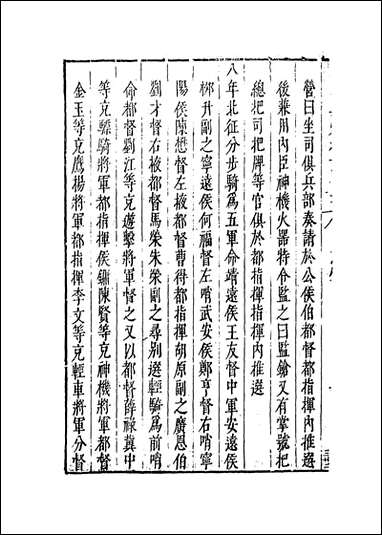 營曰坐司俱兵部奏請於公侯伯都督都指揮內推選
後兼用內臣神機火器特令監之曰監鎗又有掌號把
總把司把牌等官俱於都指揮指揮內推選
八年北征分步騎爲五軍命靖遠侯王友督中軍安遠侯
柳升副之寧遠侯何福督左哨武安侯鄭亨督右哨寧
陽侯陳懋督左掖都督曹得都指揮胡原副之廣恩伯
劉才督右掖都督馬榮朱榮副之尋别選輕騎爲前哨
命都督劉江等充遊擊將軍督之又以都督薛祿冀中
等充驃騎將軍都指揮侯鏞陳賢等充神機將軍都督
金玉等充鷹揚將軍都指揮李文等充輕車將軍分督